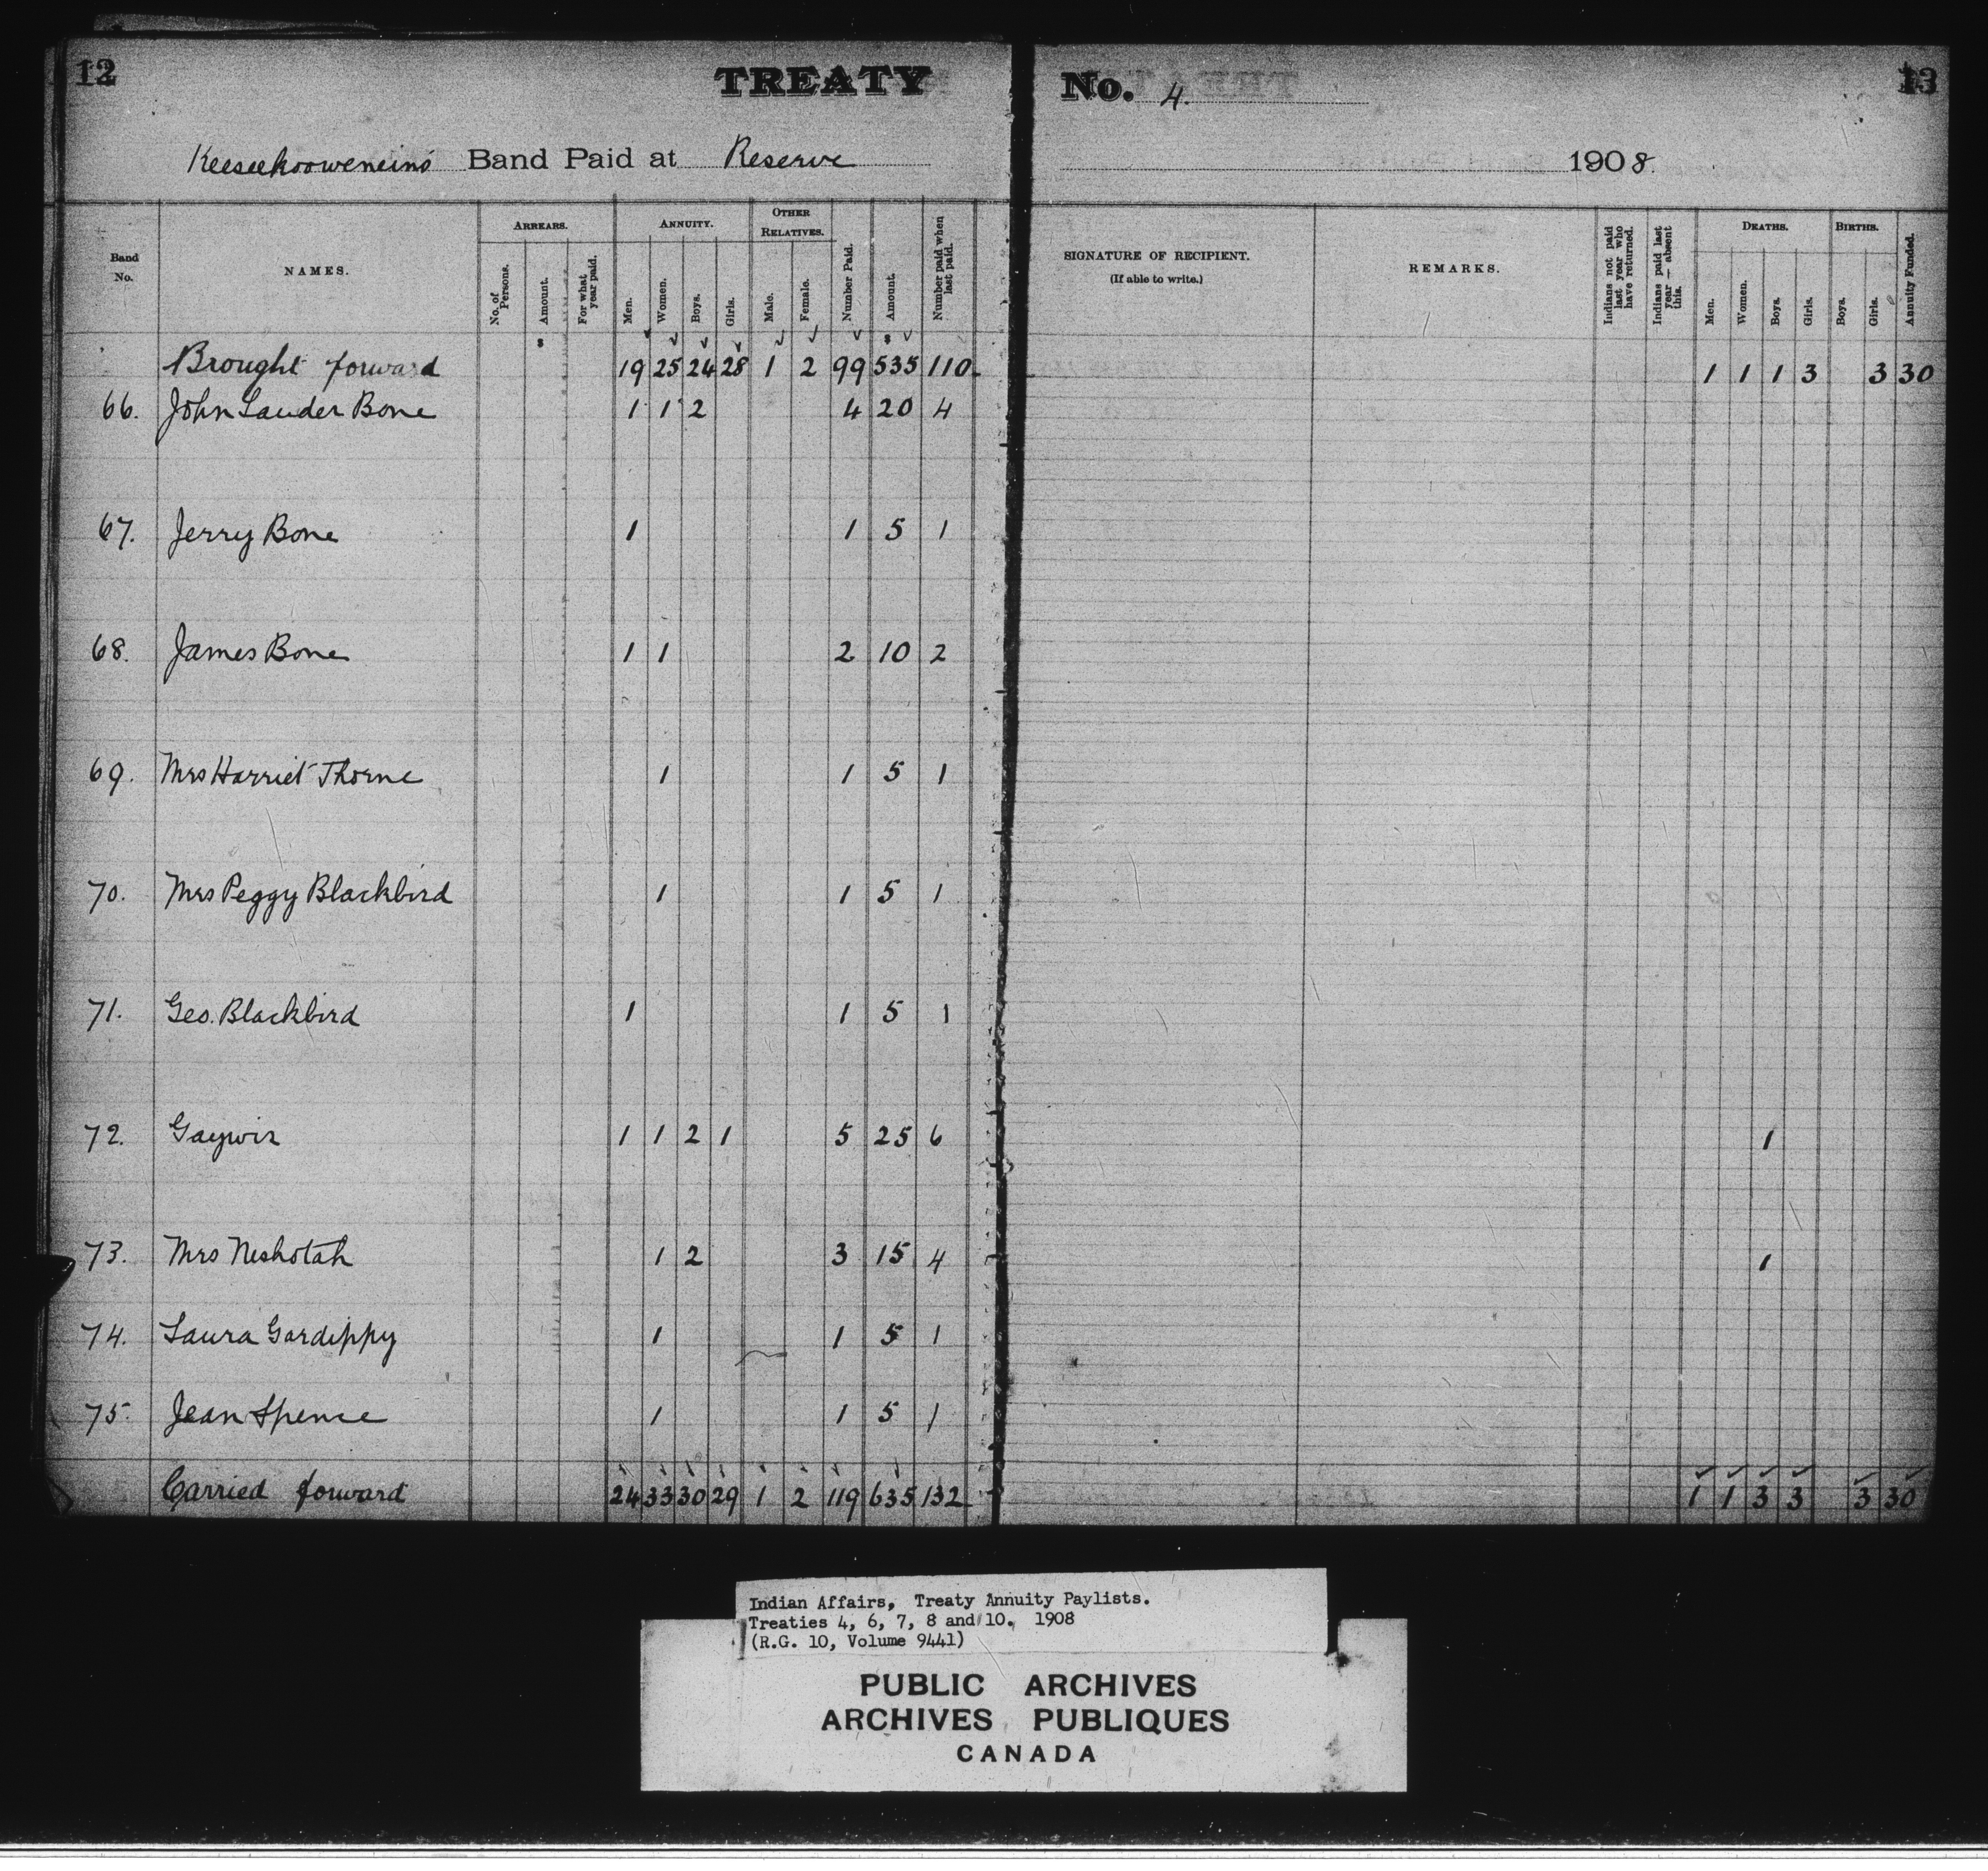 12
TREATY No. 4.
13
Keeseekooweneins Band Paid at Reserve 1908.
Band No. NAMES. ARREARS. No. of Persons. Amount. For what year paid. ANNUITY. Men. Women. Boys. Girls. OTHER RELATIVES. Male. Female. Number Paid. Amount. Number paid when last paid. SIGNATURE OF RECIPIENT. (If able to write.) REMARKS. Indians not paid last year who have returned. Indians paid last year — absent this. DEATHS. Men. Women. Boys. Girls. BIRTHS. Boys. Girls. Annuity Funded.
Brought forward 19 25 24 28 1 2 99 535 110 1 1 1 3 3 30
66. John Lauder Bone 1 1 2 4 20 4
67. Jerry Bone 1 1 5 1
68. James Bone 1 1 2 10 2
69. Mrs Harriet Thorne 1 1 5 1
70. Mrs Peggy Blackbird 1 1 5 1
71. Geo. Blackbird 1 1 5 1
72. Gaywis 1 1 2 1 5 25 6 1
73. Mrs Neshotah 1 2 3 15 4 1
74. Laura Gardippy 1 1 5 1
75. Jean Spence 1 1 5 1
Carried forward 24 33 30 29 1 2 119 635 132 1 1 3 3 3 30
Indian Affairs, Treaty Annuity Paylists.
Treaties 4, 6, 7, 8 and 10. 1908
(R.G. 10, Volume 9441)
PUBLIC ARCHIVES
ARCHIVES PUBLIQUES
CANADA